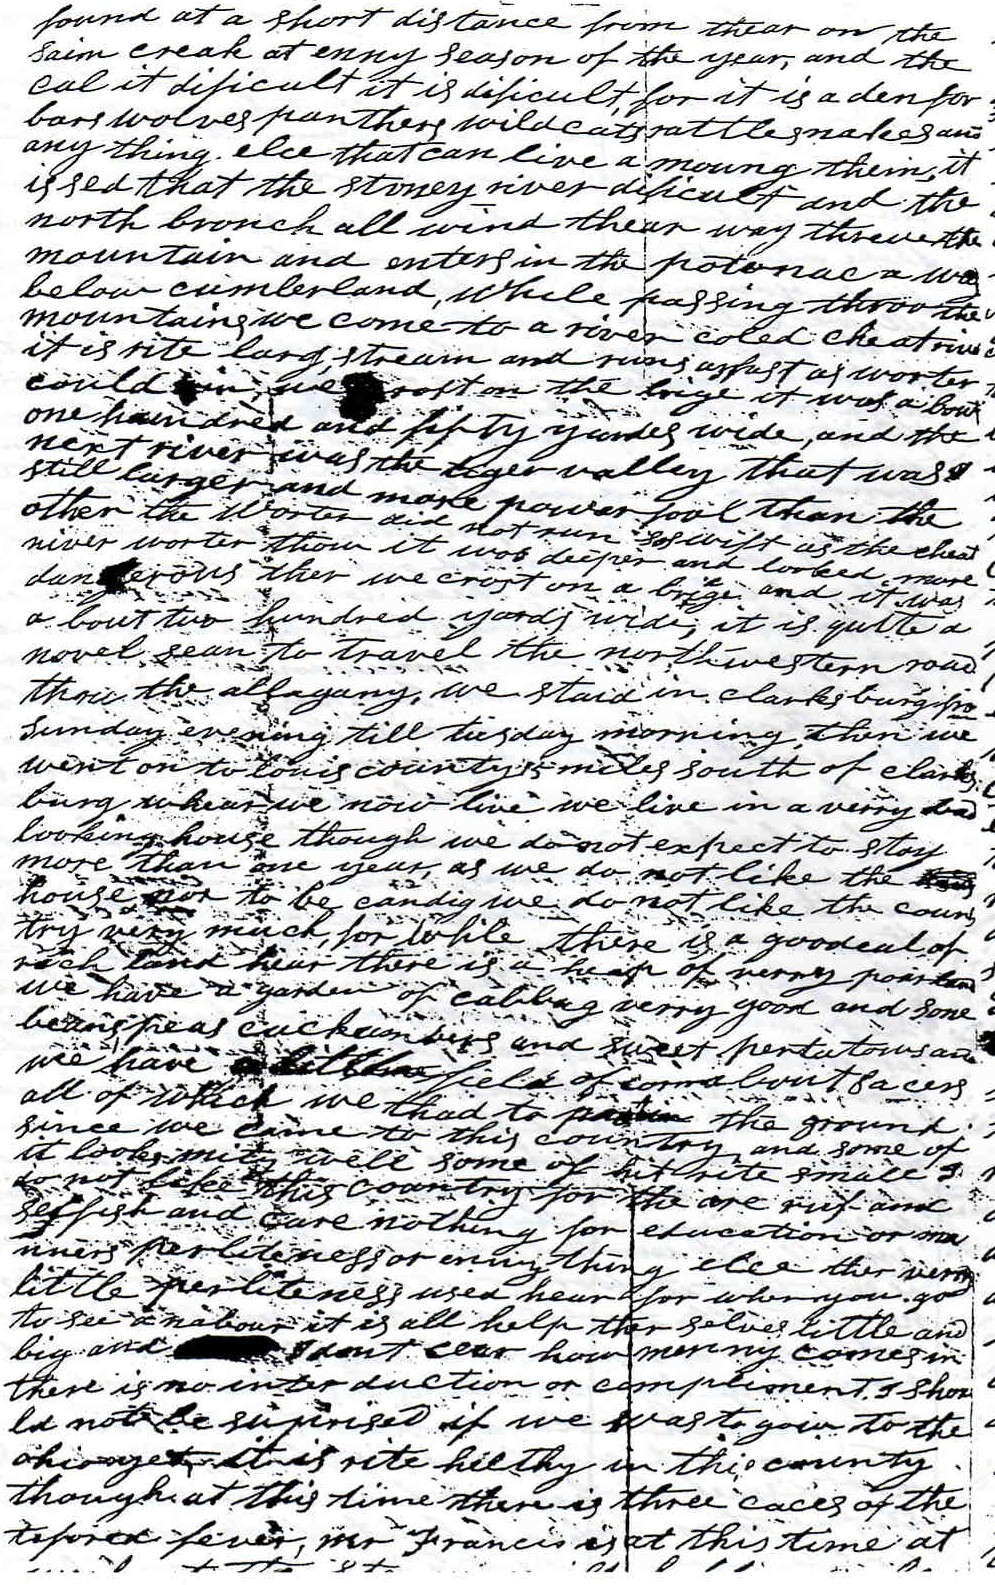 found at a short distance from thear on the
saim creak at enny season of the year, and the
cal it dificult it is dificult, for it is a den for
bars wolves panthers wildcats rattlesnakes and
any thing else that can live a moung them, it
is sed that the stoney river dificult and the
north bronch all wind thear way threw the
mountain and enters in the potomac a way
below cumberland, While passing throo the
mountains we come to a river coled cheat river
it is rite larg stream and runs as fast as worter
could run we crost on the brige it was a bout
one hundred and fifty yardes wide, and the
next river was the tiger valley that was
still larger and more powerfool than the
other the worter did not run so swift as the cheat
river worter thow it was deeper and looked more
dangerous ther we crost on a brige and it was
a bout two hundred yards wide, it is quite a
novel sean to travel the northwestern road
throo the allagany, we staid in clarksburg fro
sunday evening till tusday morning, then we
went on to louis county 15 miles south of clarks
burg whear we now live we live in a verry bad
looking house though we do not expect to stay
more than one year, as we do not like the
house nor to be candig we do not like the coun
try very much, for while there is a goodeal of
rich land hear there is a heap of verry poor land
we have a garden of cabbag verry good and some
beans peas cuckumbers and sweet pertatows and
we have field of corn about 8 acers
all of which we had to the ground
since we came to this country, and some of
it looks mity well some of hit rite small I
do not like this country for the are ruf and
selfish and care nothing for education or ma
nners perliteness or enny thing else ther verry
little perliteness used hear for when you go
to see a nabour it is all help ther selves little and
big and dont cear how menny comes in
there is no interduction or compliment. I shou
ld not be suprised if we was to goin to the
ohio yet, it is rite helthy in this county
though at this time there is three caces of the
tifored fever, mr Francis is at this time at